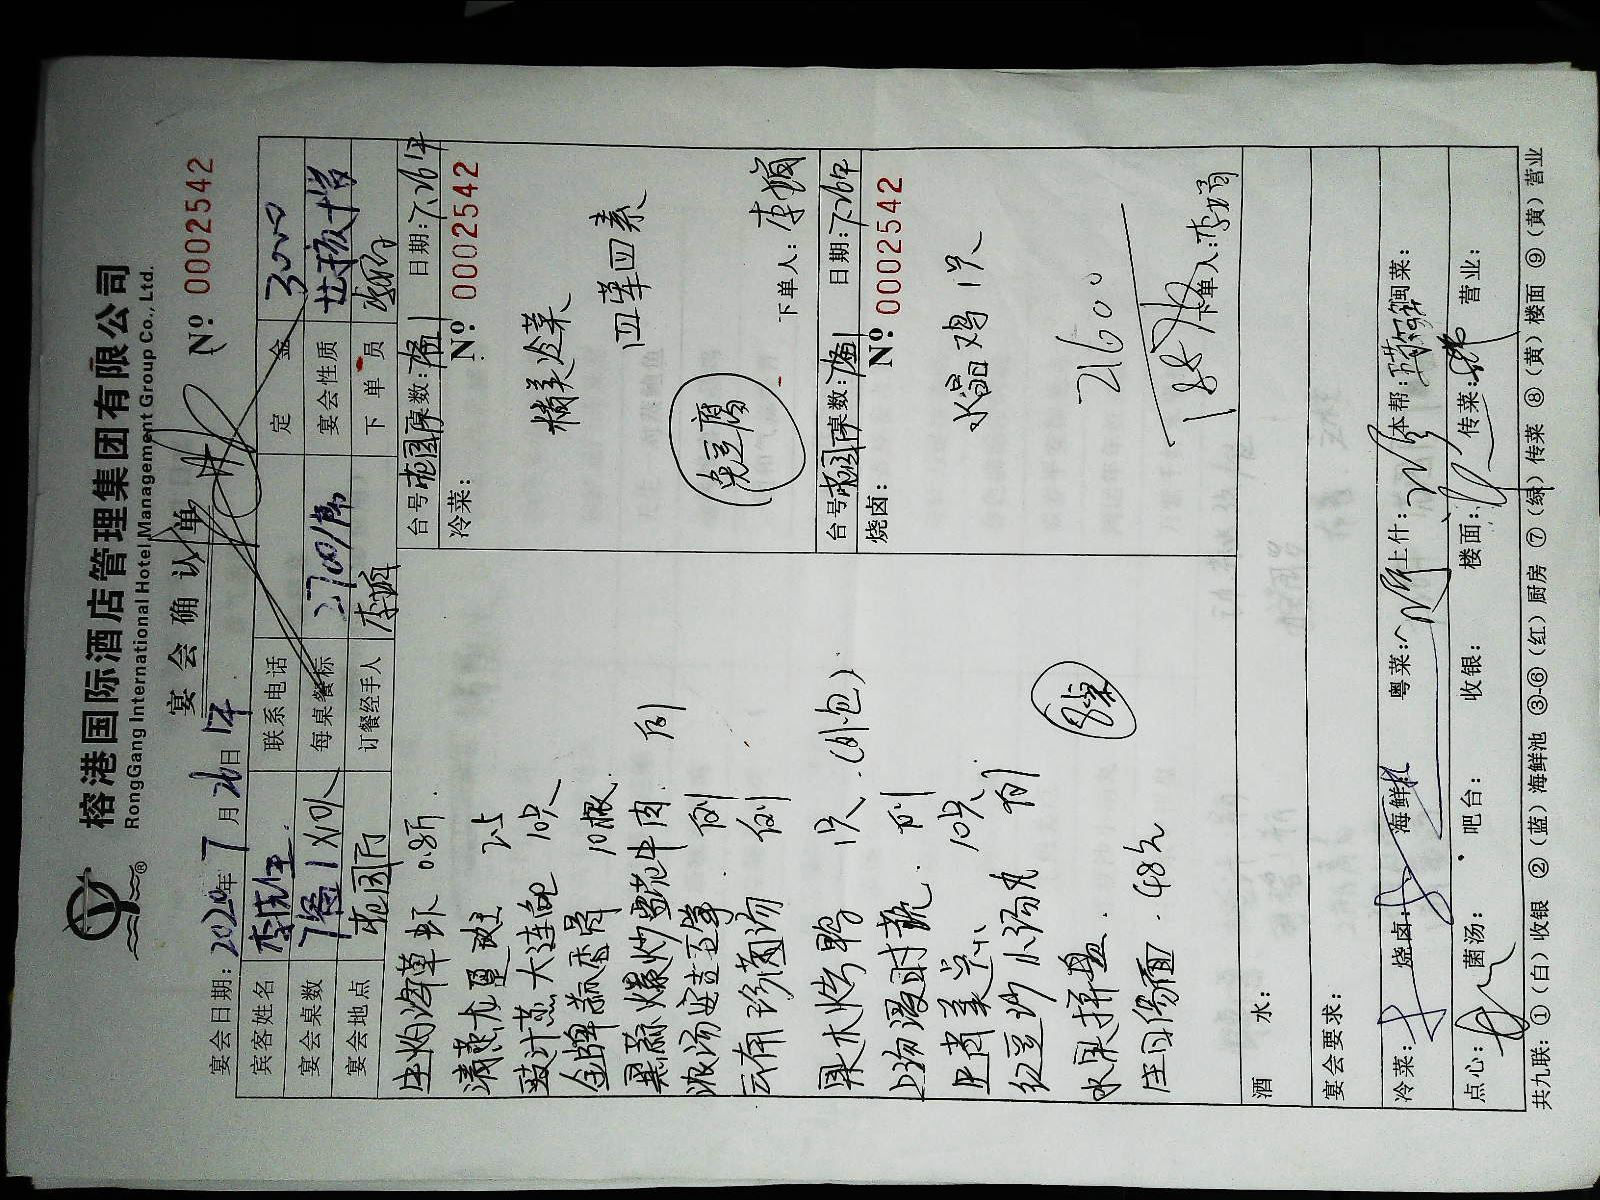 榕港国际酒店管理集团有限公司
RongGang International Hotel Management Group Co., Ltd.
宴会确认单
Nº 0002542
宴会日期：2020年7月26日
宾客姓名 李先生 联系电话 定金 3000
宴会桌数 1×10人 每桌餐标 2700/席 宴会性质
宴会地点 订餐经手人 李 下单员
白灼海草虾 0.8斤
清蒸龙凰斑 2.5
豉汁蒸大连鲍 10只
金牌蒜香骨 10根
黑蒜爆炒雪花牛肉
浓汤
云南珍菌汤 例
果木烤鸭 1只（外包）
上汤浸时蔬 例
10只
红豆沙小汤丸 例
水果拼盘
汤面 48元
台号 桌数： 日期：7.26
冷菜： Nº 0002542
精美冷菜
四荤四素
免豆腐
下单人：李
台号 桌数： 日期：7.26
烧卤： Nº 0002542
水晶鸡 1只
2600
1887
下单人：李
酒水：
宴会要求：
冷菜： 烧卤： 海鲜： 粤菜： 上什： 本帮： 闽菜：
点心： 菌汤： 吧台： 收银： 楼面： 传菜： 营业：
共九联：①（白）收银 ②（蓝）海鲜池 ③-⑥（红）厨房 ⑦（绿）传菜 ⑧（黄）楼面 ⑨（黄）营业